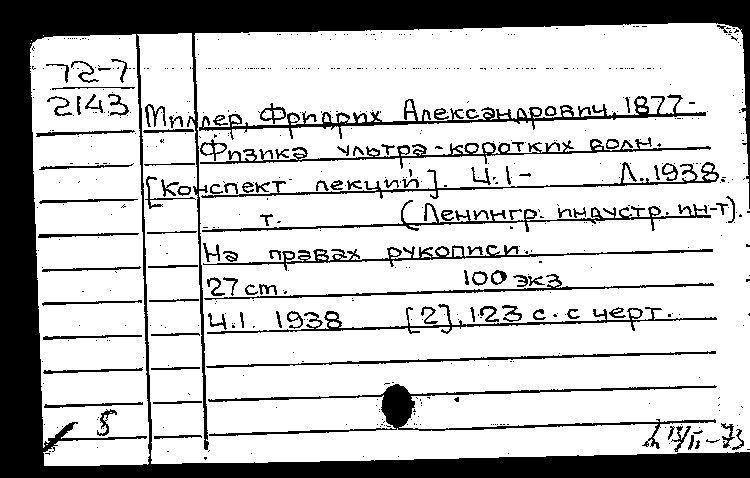 72-7
2143
Миллер, Фридрих Александрович, 1877-
Физика ультра-коротких волн.
[Конспект лекций]. Ч.1- Л., 1938.
т. (Ленингр. индустр. ин-т).
На правах рукописи.
27 ст. 100 экз
Ч.1. 1938 [2], 123 с. с черт.